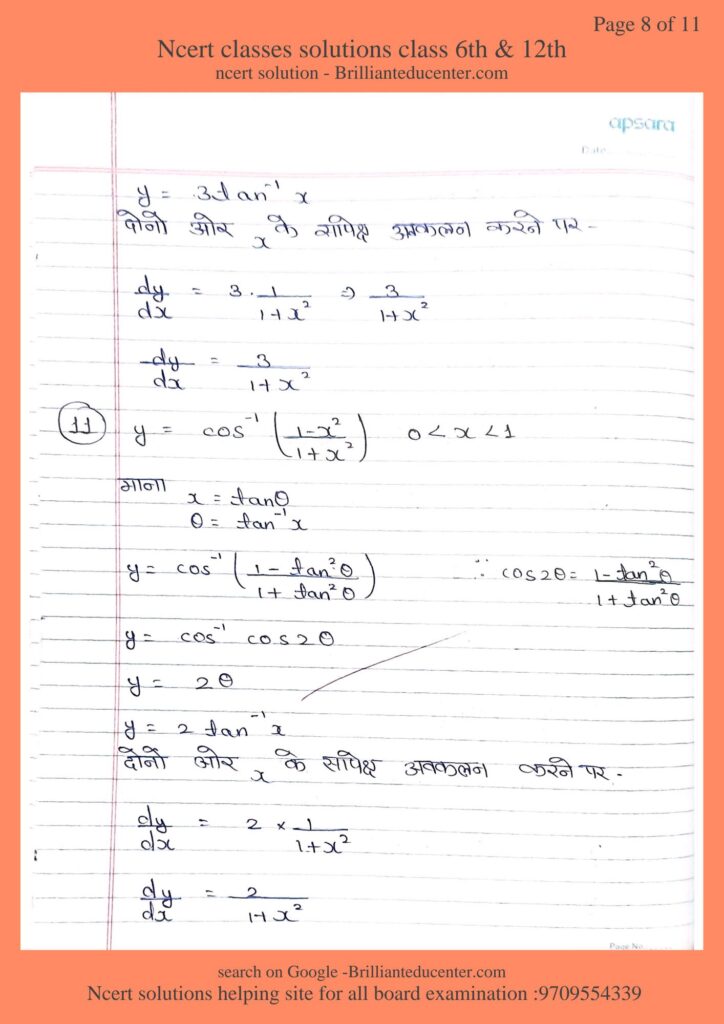 Page 8 of 11
Ncert classes solutions class 6th & 12th
ncert solution - Brillianteducenter.com
apsara
Date
y = 3tan⁻¹ x
दोनों ओर x के सापेक्ष अवकलन करने पर -
dy/dx = 3 · 1/(1+x²) ⇒ 3/(1+x²)
dy/dx = 3/(1+x²)
11 y = cos⁻¹ ((1-x²)/(1+x²)) 0 < x < 1
माना x = tanθ
θ = tan⁻¹x
y = cos⁻¹ ((1 - tan²θ)/(1 + tan²θ)) ∵ cos2θ = (1 - tan²θ)/(1 + tan²θ)
y = cos⁻¹ cos2θ
y = 2θ
y = 2 tan⁻¹x
दोनों ओर x के सापेक्ष अवकलन करने पर -
dy/dx = 2 × 1/(1+x²)
dy/dx = 2/(1+x²)
Page No.
search on Google -Brillianteducenter.com
Ncert solutions helping site for all board examination :9709554339